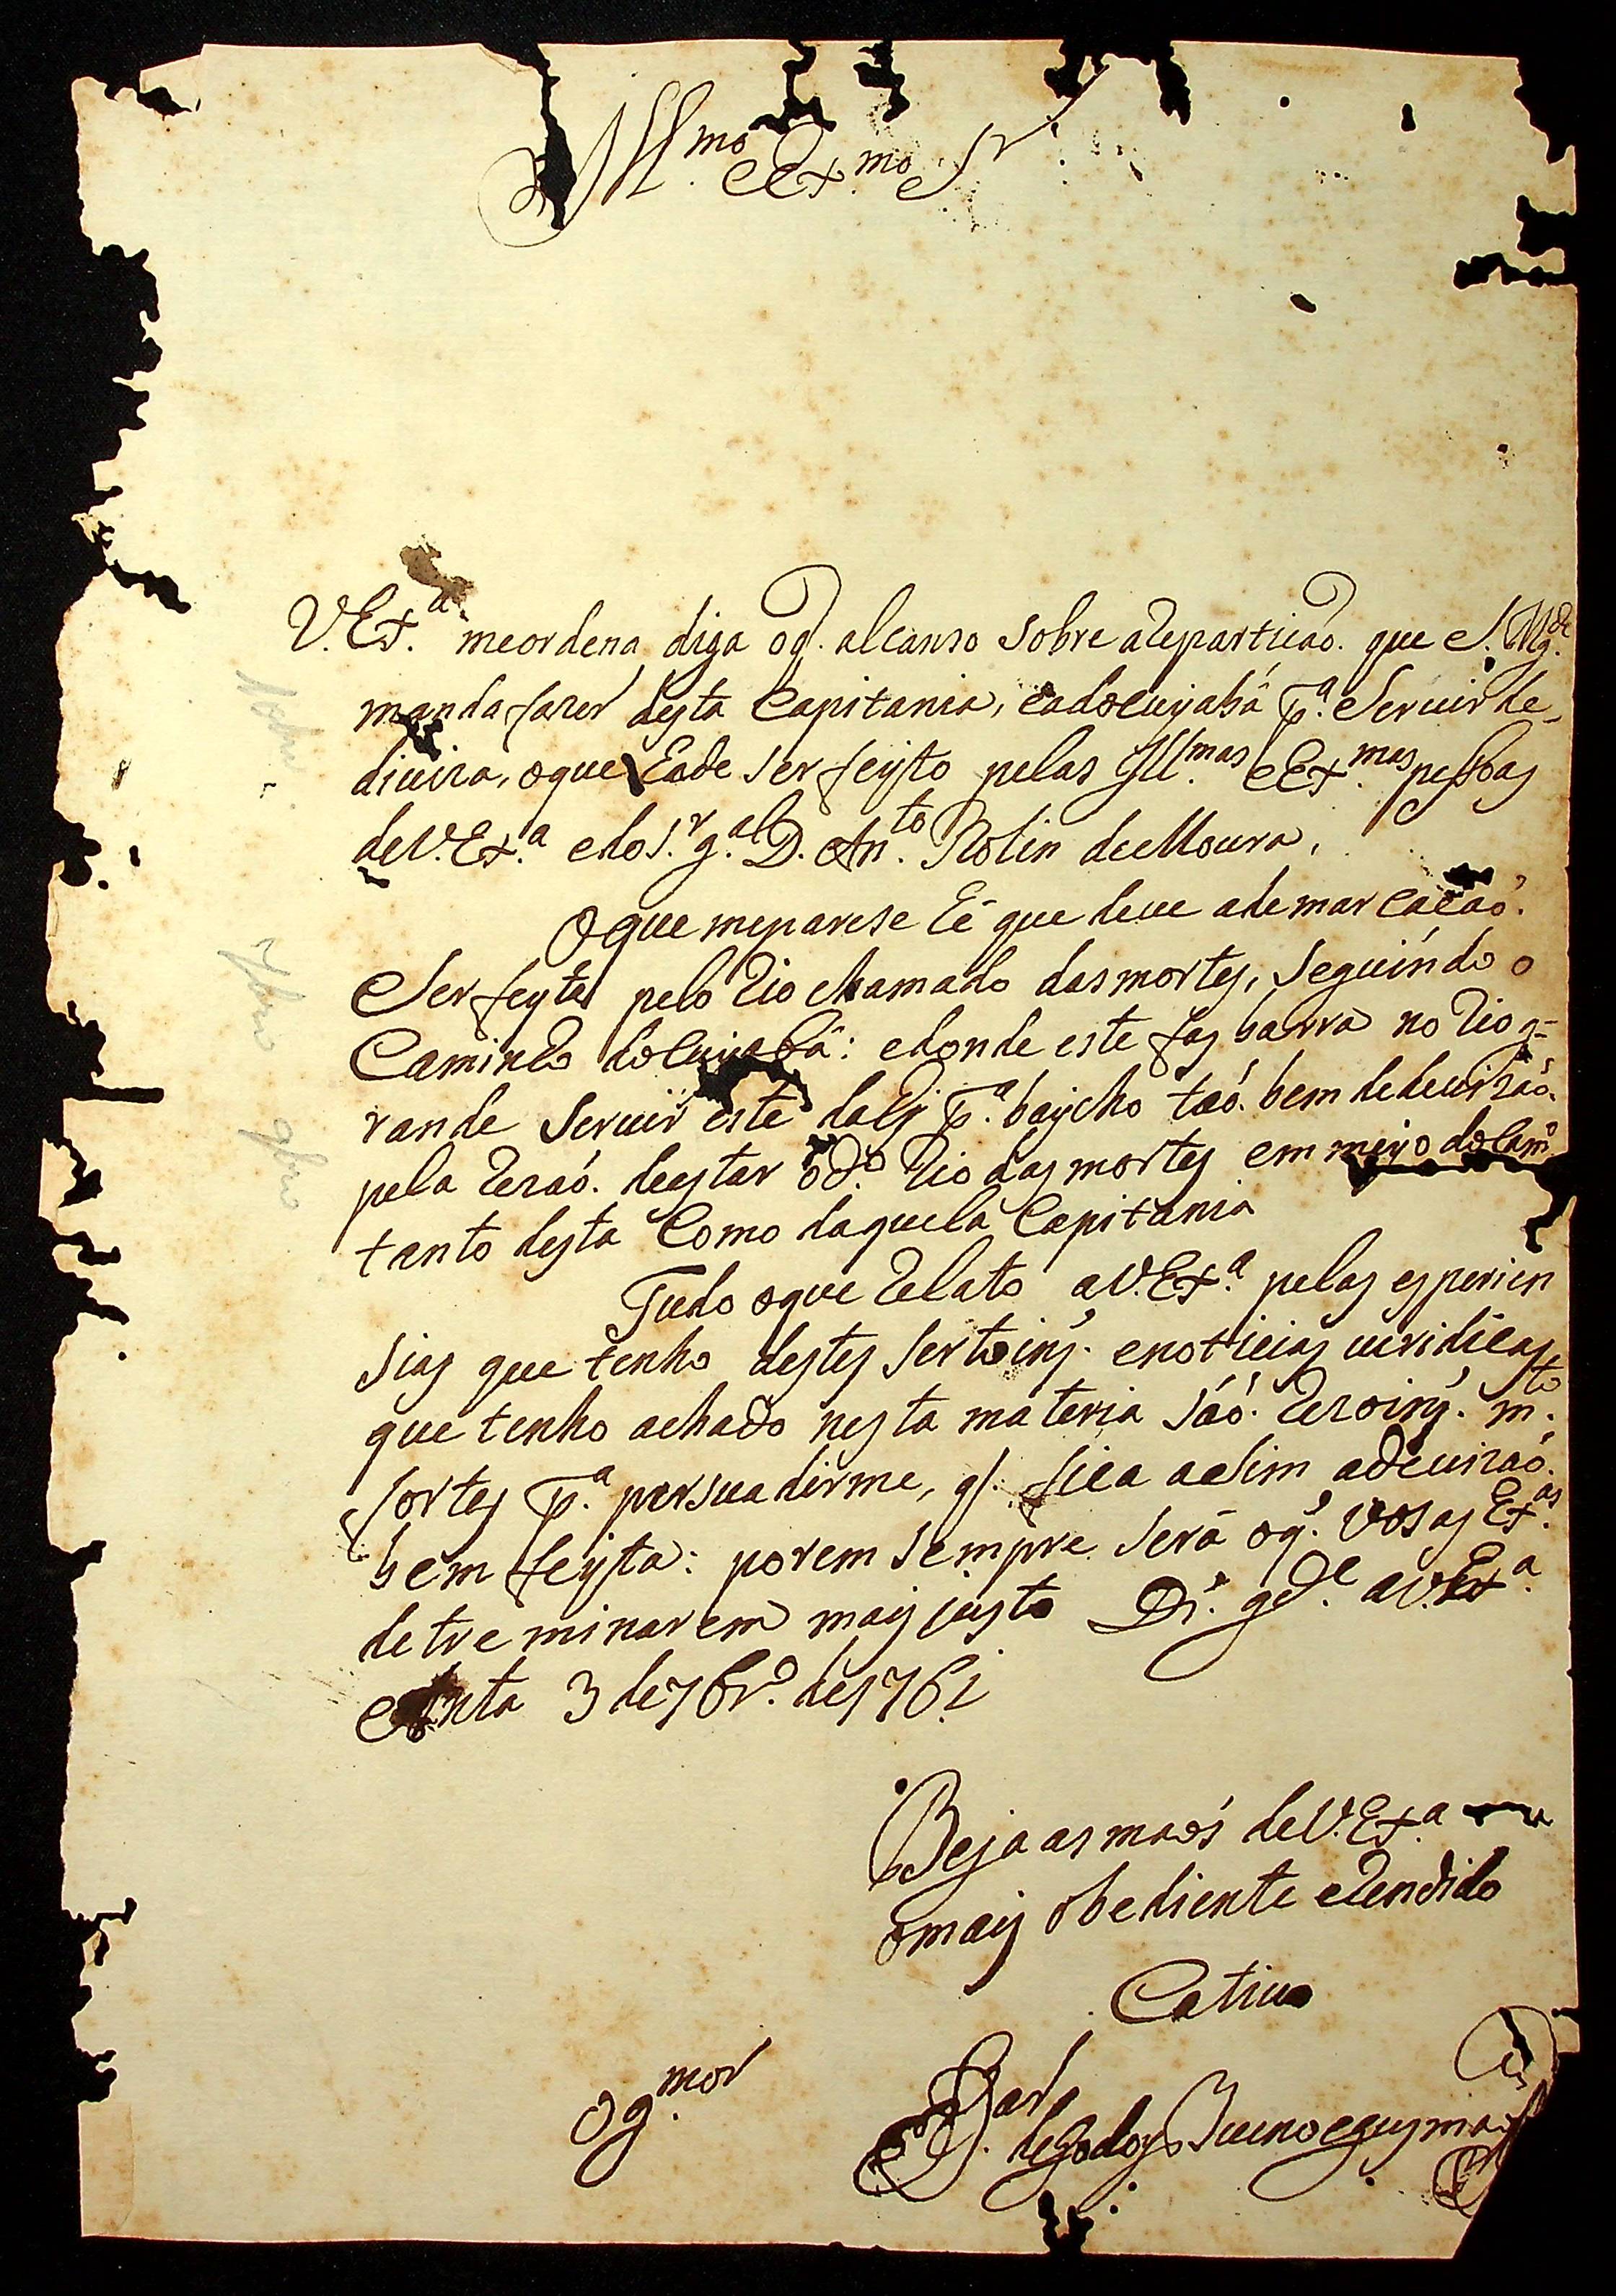 Ill.mo e Ex.mo Sr
V. Ex.a me ordena diga o q. alcanso sobre a repartiçaó. que S. Mg.de
manda fazer desta Capitania, e a do cuyabâ p.a Servir de
diviza, o que hade ser feyto pelas Ill.mas e Ex.mas pessoas
de V. Ex.a e do S.r g.al D. An.to Rolin de Moura,
O que me parese hê que deve a demarcaçaó.
Ser feyta pelo rio chamado das mortes, Seguindo o
Caminho do cuyabâ: e donde este fas barra no rio g=
rande Servir este dahy p.a baycho taó. bem de devizaó.
pela rezaó. de estar o d.o rio das mortes em meyo do Cam.o
tanto desta Como daquela Capitania
Tudo o que relato a V. Ex.a pelas esperien
sias que tenho destes Sertoins. e noticias veridicas
que tenho achado nesta materia Saó. rezoins. m.to
fortes p.a persuadirme, q. fica assim a devizaó.
bem feyta: porem sempre Serâ o q. vosas Ex.as
detreminarem mais justo D.s g.de a V. Ex.a
Anta 3 de 7br.o de 1761
Beja as maós de V. Ex.a
o mais obediente e rendido
Cativo
O g. mor
B.ar de Godoy Bueno e gusmaó